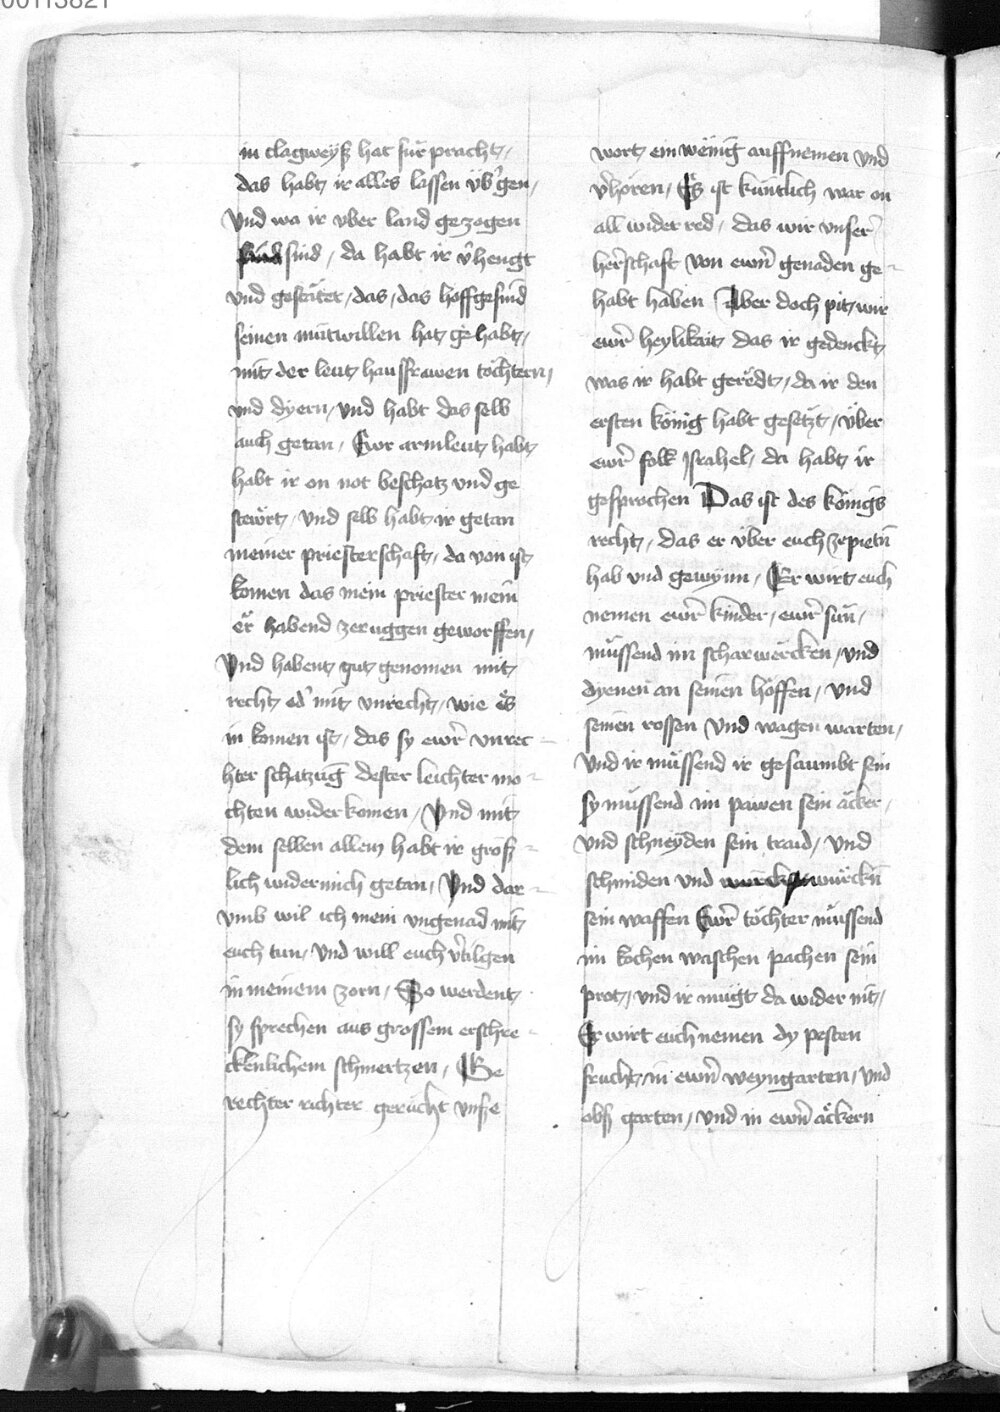 00113821
in clagweyß hat fur pracht,
das habt ir alles lassen ub'gen,
Vnd wa ir vber land gezogen
sind, da habt ir v'hengt
vnd gestatet, das, das hoffgesind
seinen mutwillen hat gehabt,
mit der leut haussfrawen töchtern,
vnd dyern, vnd habt das selb
auch getan, Ewr armleut habt
habt ir on not beschatz vnd ge
stewrt, vnd selb habt ir getan
meiner priesterschaft, da von ist
komen das mein priester mein
er habend zeruggen geworffen,
Vnd habent gut genomen mit
recht od' mit vnrecht, wie es
in komen ist, das sy ewr̄ vnrec
hter schatzūg dester leichter mo
chten widerkomen, Vnd mit
dem selben allem habt ir größ
lich wider mich getan, Vnd dar
vmb wil ich mein vngenad mit
euch tun, vnd will euch v'tilgen
in meinem zorn, So werdent
sy sprechen aus grossem erschre
ckenlichem schmertzen, Ge
rechter richter gerücht vnsre
wort ein wenig auffnemen vnd
v'hören, Es ist küntlich war on
all wider red, das wir vnser
herschaft von ewrn̄ genaden ge
habt haben Aber doch pit wir
ewr̄ heylikait das ir gedenckt
was ir habt geredt, da ir den
ersten könig habt gesetzt, über
ewr̄ folk Israhel, da habt ir
gesprochen Das ist des königs
recht, das er über euch zepietn̄
hab vnd gewynn, Er wirt euch
nemen ewr̄ kinder, ewr̄ sün,
müssend im scharwercken, vnd
dyenen an seinen höffen, vnd
seinen rossen vnd wagen warten,
Vnd ir müssend ir gesaumbt sein
sy müssend im pawen sein äcker,
vnd schneyden sein traid, vnd
schmiden vnd würckn̄
sein waffen Ewr̄ töchter müssend
im kochen waschen pachen sein
prot, vnd ir mugt da wider nit,
Er wirt euch nemen dy pesten
frucht, in ewrn̄ weyngarten, vnd
obß garten, vnd in ewrn̄ äckern